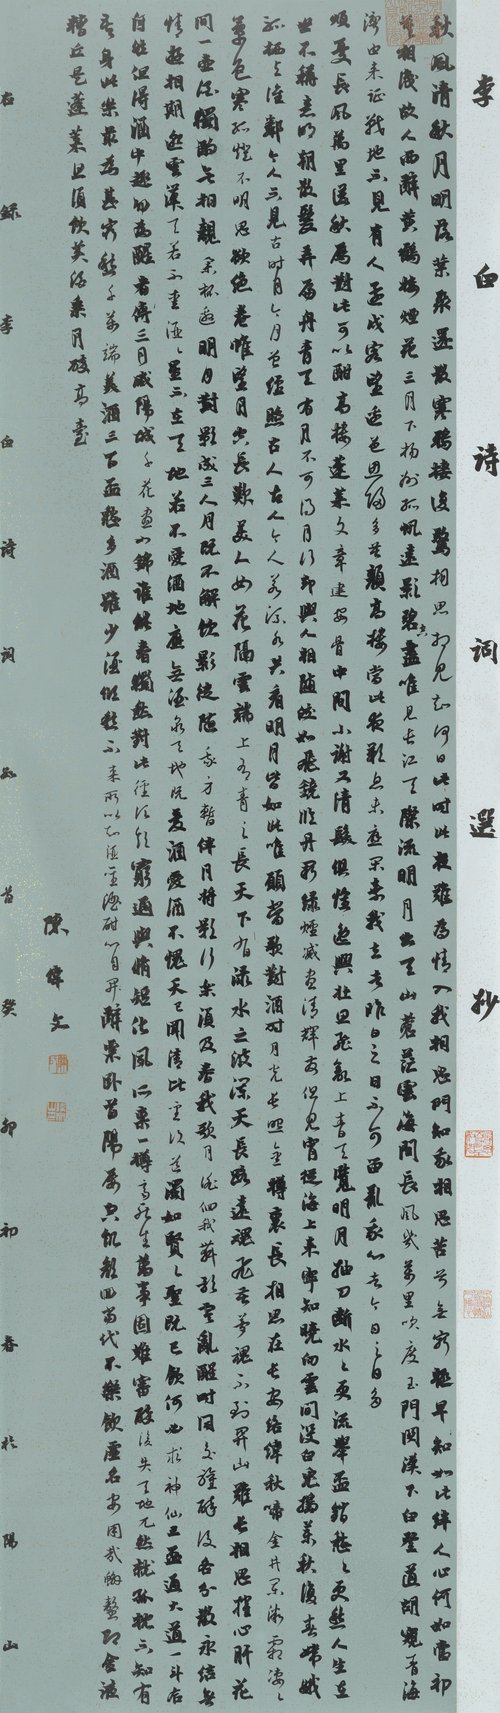 李白詩詞選抄
秋風清秋月明落葉聚還散寒鴉棲復驚相思相見知何日此時此夜難為情入我相思門知我相思苦兮無窮極早知如此絆人心何如當初
莫相識故人西辭黃鶴樓煙花三月下揚州孤帆遠影碧空盡唯見長江天際流明月出天山蒼茫雲海間長風幾萬里吹度玉門關漢下白登道胡窺青海
灣由來征戰地不見有人還戍客望邊邑思歸多苦顏高樓當此夜歎息未應閑棄我去者昨日之日不可留亂我心者今日之日多
煩憂長風萬里送秋雁對此可以酣高樓蓬萊文章建安骨中間小謝又清發俱懷逸興壯思飛欲上青天覽明月抽刀斷水水更流舉杯銷愁愁更愁人生在
世不稱意明朝散髮弄扁舟青天有月不可得月行卻與人相隨皎如飛鏡臨丹闕綠煙滅盡清輝發但見宵從海上來寧知曉向雲間沒白兔搗藥秋復春嫦娥
孤棲與誰鄰今人不見古時月今月曾經照古人古人今人若流水共看明月皆如此唯願當歌對酒時月光長照金樽裏長相思在長安絡緯秋啼金井闌微霜淒淒
簟色寒孤燈不明思欲絕卷帷望月空長歎美人如花隔雲端上有青之長天下有淥水之波瀾天長路遠魂飛苦夢魂不到關山難長相思摧心肝花
間一壺酒獨酌無相親舉杯邀明月對影成三人月既不解飲影徒隨我身暫伴月將影行樂須及春我歌月徘徊我舞影零亂醒時同交歡醉後各分散永結無
情遊相期邈雲漢天若不愛酒酒星不在天地若不愛酒地應無酒泉天地既愛酒愛酒不愧天已聞清比聖復道濁如賢賢聖既已飲何必求神仙三杯通大道一斗合
自然但得酒中趣勿為醒者傳三月咸陽城千花晝如錦誰能春獨愁對此徑須飲窮通與修短造化夙所稟一樽齊死生萬事固難審醉後失天地兀然就孤枕不知有
吾身此樂最為甚窮愁千萬端美酒三百杯愁多酒雖少酒傾愁不來所以知酒聖酒酣心自開辭粟臥首陽屢空飢顏回當代不樂飲虛名安用哉蟹螯即金液
糟丘是蓬萊且須飲美酒乘月醉高臺
陳偉文
右錄李白詩詞數首癸卯初春於陽山